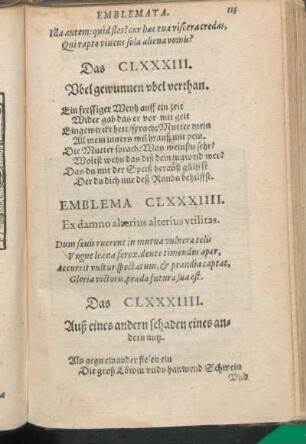 EMBLEMATA. 115
Illa autem: quid fles? cur haec tua viscera credas,
Qui rapto vivens sola aliena vomis?
Das CLXXXIII.
Vbel gewunnen vbel verthan.
Ein fressiger Weyh auff ein zeit
Wider gab das er vor mit geit
Eingewirckt hett/sprach: Mutter mein
All mein inners wil brauß mit pein.
Die Mutter sprach: Was weinstu sehr?
Woltst wehn das diß dein jngwend wer?
Das du mit der Speiß herauß gülffst
Der du dich nur deß Raubs behilffst.
EMBLEMA CLXXXIIII.
Ex damno alterius alterius vtilitas.
Dum saeuis ruerent in mutua vulnera telis
Vngue leaena ferox, dente timendus aper,
Accurrit vultur spectatum, & prandia captat,
Gloria victoris, praeda futura sua est.
Das CLXXXIIII.
Auß eines andern schaden eines an-
dern nutz.
Als gegn einander fielen ein
Die groß Löwin vnds hauwend Schwein
Vnd